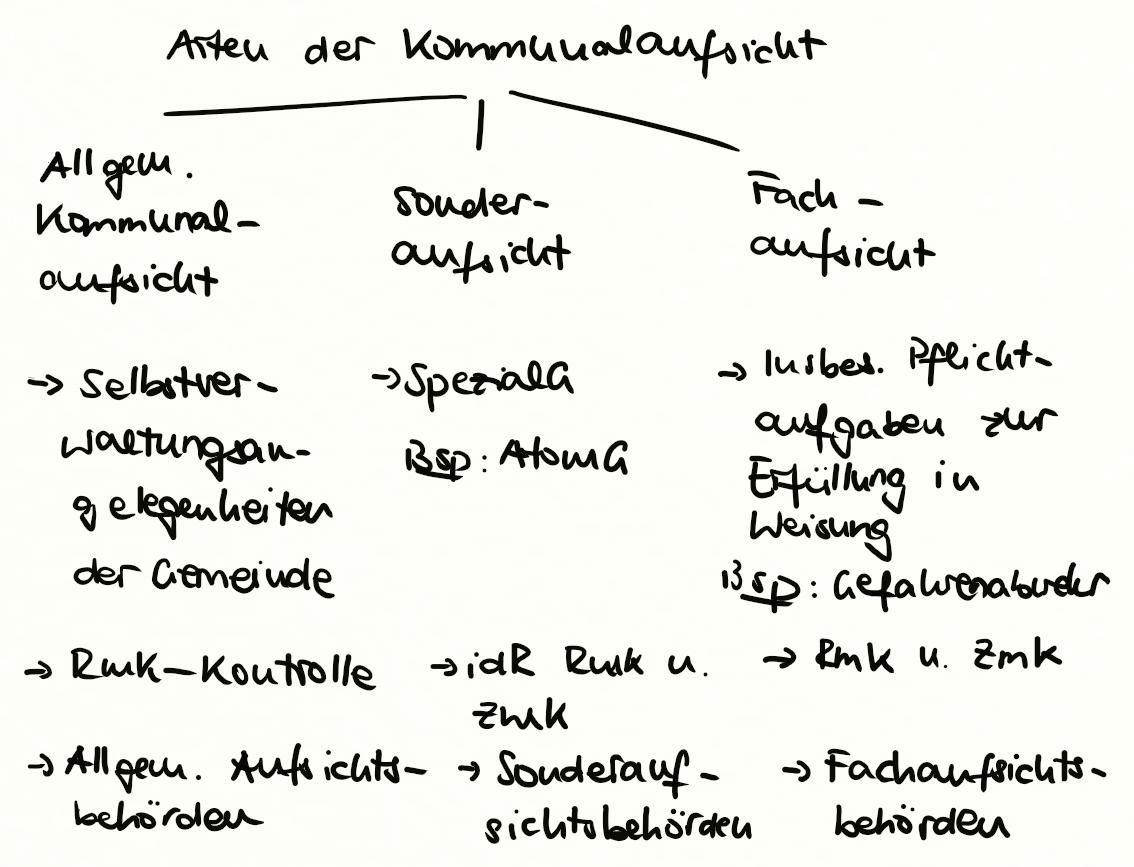 Arten der Kommunalaufsicht
Allgem.
Kommunal-
aufsicht
→ Selbstver-
waltungsan-
gelegenheiten
der Gemeinde
→ RmK-Kontrolle
→ Allgem. Aufsichts-
behörden
Sonder-
aufsicht
→ SpezialG
Bsp: AtomG
→ idR RmK u.
ZmK
→ Sonderauf-
sichtsbehörden
Fach-
aufsicht
→ Insbes. Pflicht-
aufgaben zur
Erfüllung in
Weisung
Bsp: Gefahrenabwehr
→ RmK u. ZmK
→ Fachaufsichts-
behörden